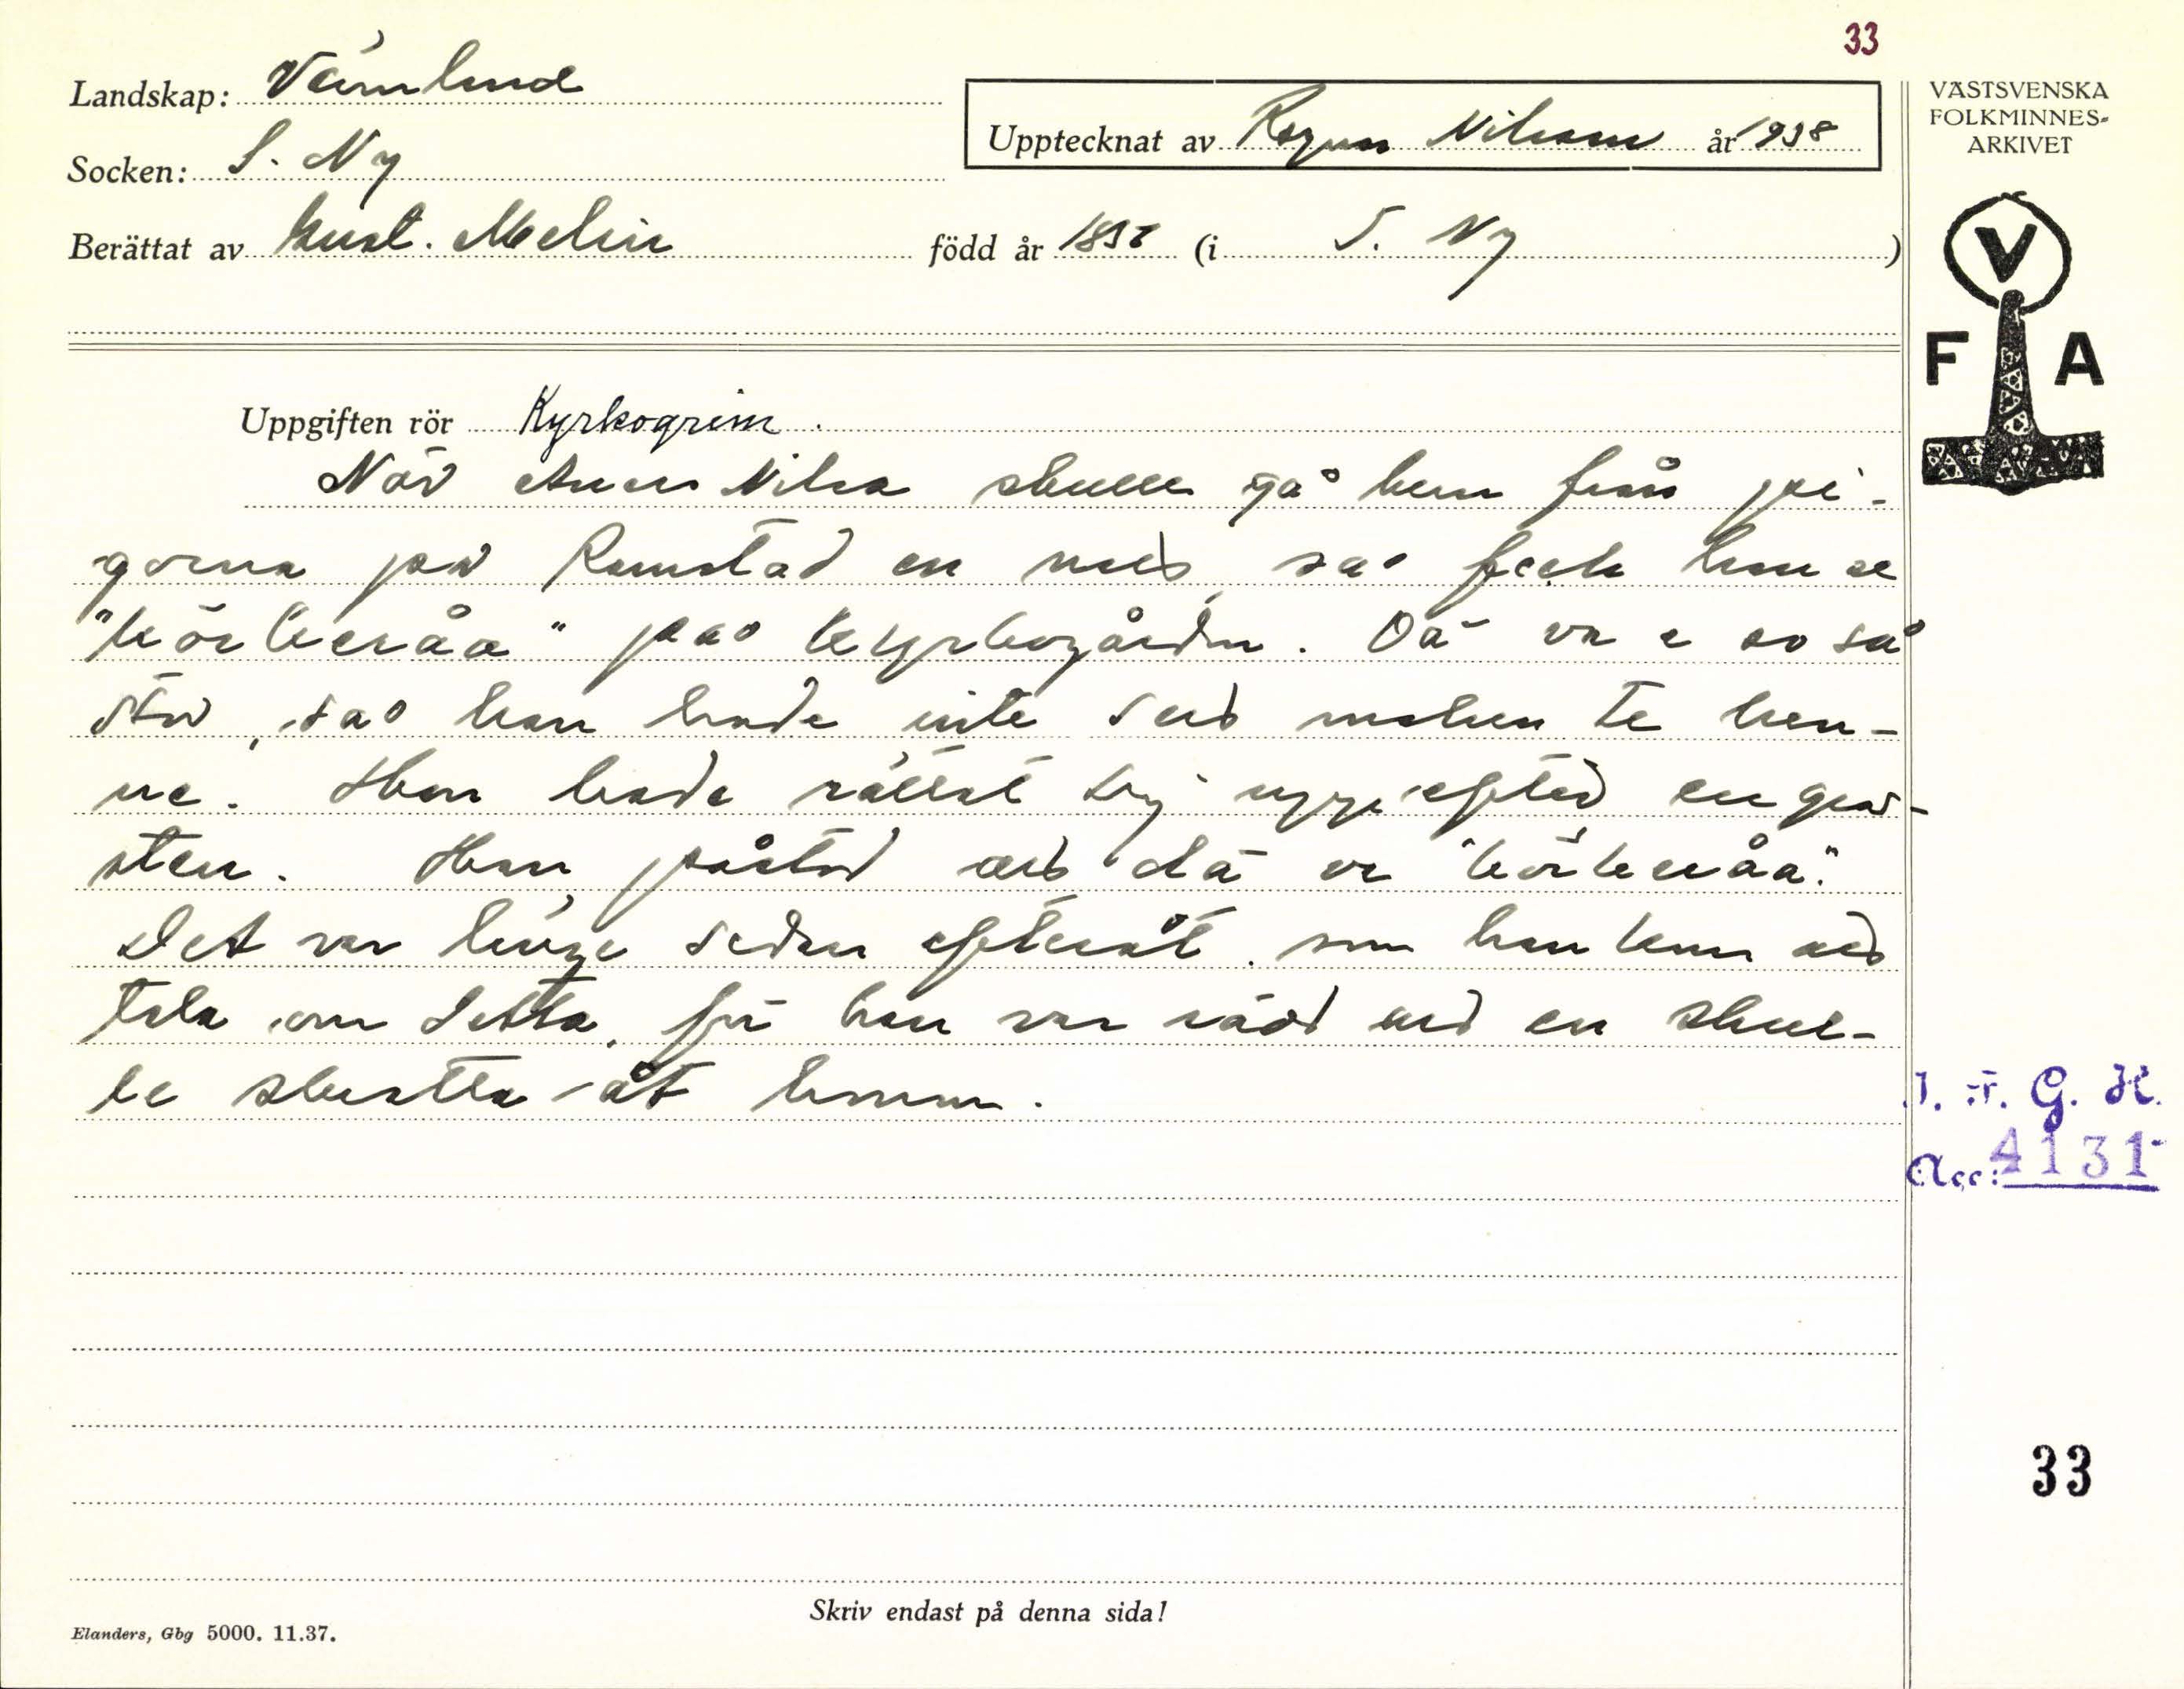 33
Landskap: Värmland
VÄSTSVENSKA
FOLKMINNES-
ARKIVET
Upptecknat av Ragnar Nilsson år 1938
Socken: S. Ny
Berättat av Gust. Melin född år (i S. Ny )
V
F A
Uppgiften rör Kyrkogrim.
När Nilsa skulle gå hem från pi-
gorna på Ramstad en så feck han se
"körkeråa" på kyrkogården. Dä va e so så
stor, så han hade inte sed maken te hen-
ne. Hon hade rället sej upp efter en grav-
sten. Han påstod att dä va "körkeråa".
Det var länge sedan efteråt, som han kom att
tala om detta, för han var rädd att en skul-
le skratta åt honom.
I. F. G. H.
Acc: 4131
33
Skriv endast på denna sida!
Elanders, Gbg 5000. 11.37.